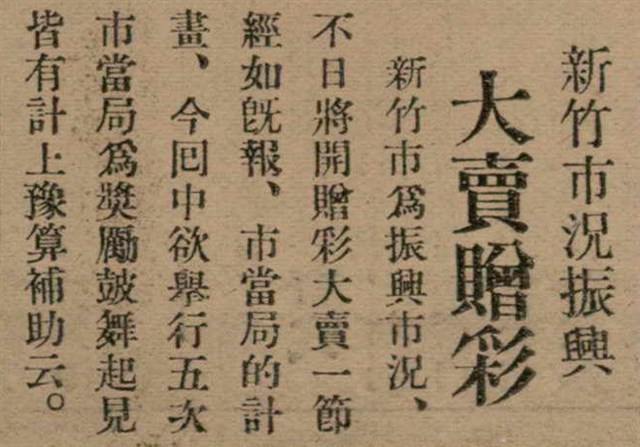 新竹市況振興
大賣贈彩
新竹市爲振興市況、
不日將開贈彩大賣一節
經如旣報、市當局的計
畫、今囘中欲舉行五次
市當局爲奬勵鼓舞起見
皆有計上豫算補助云。